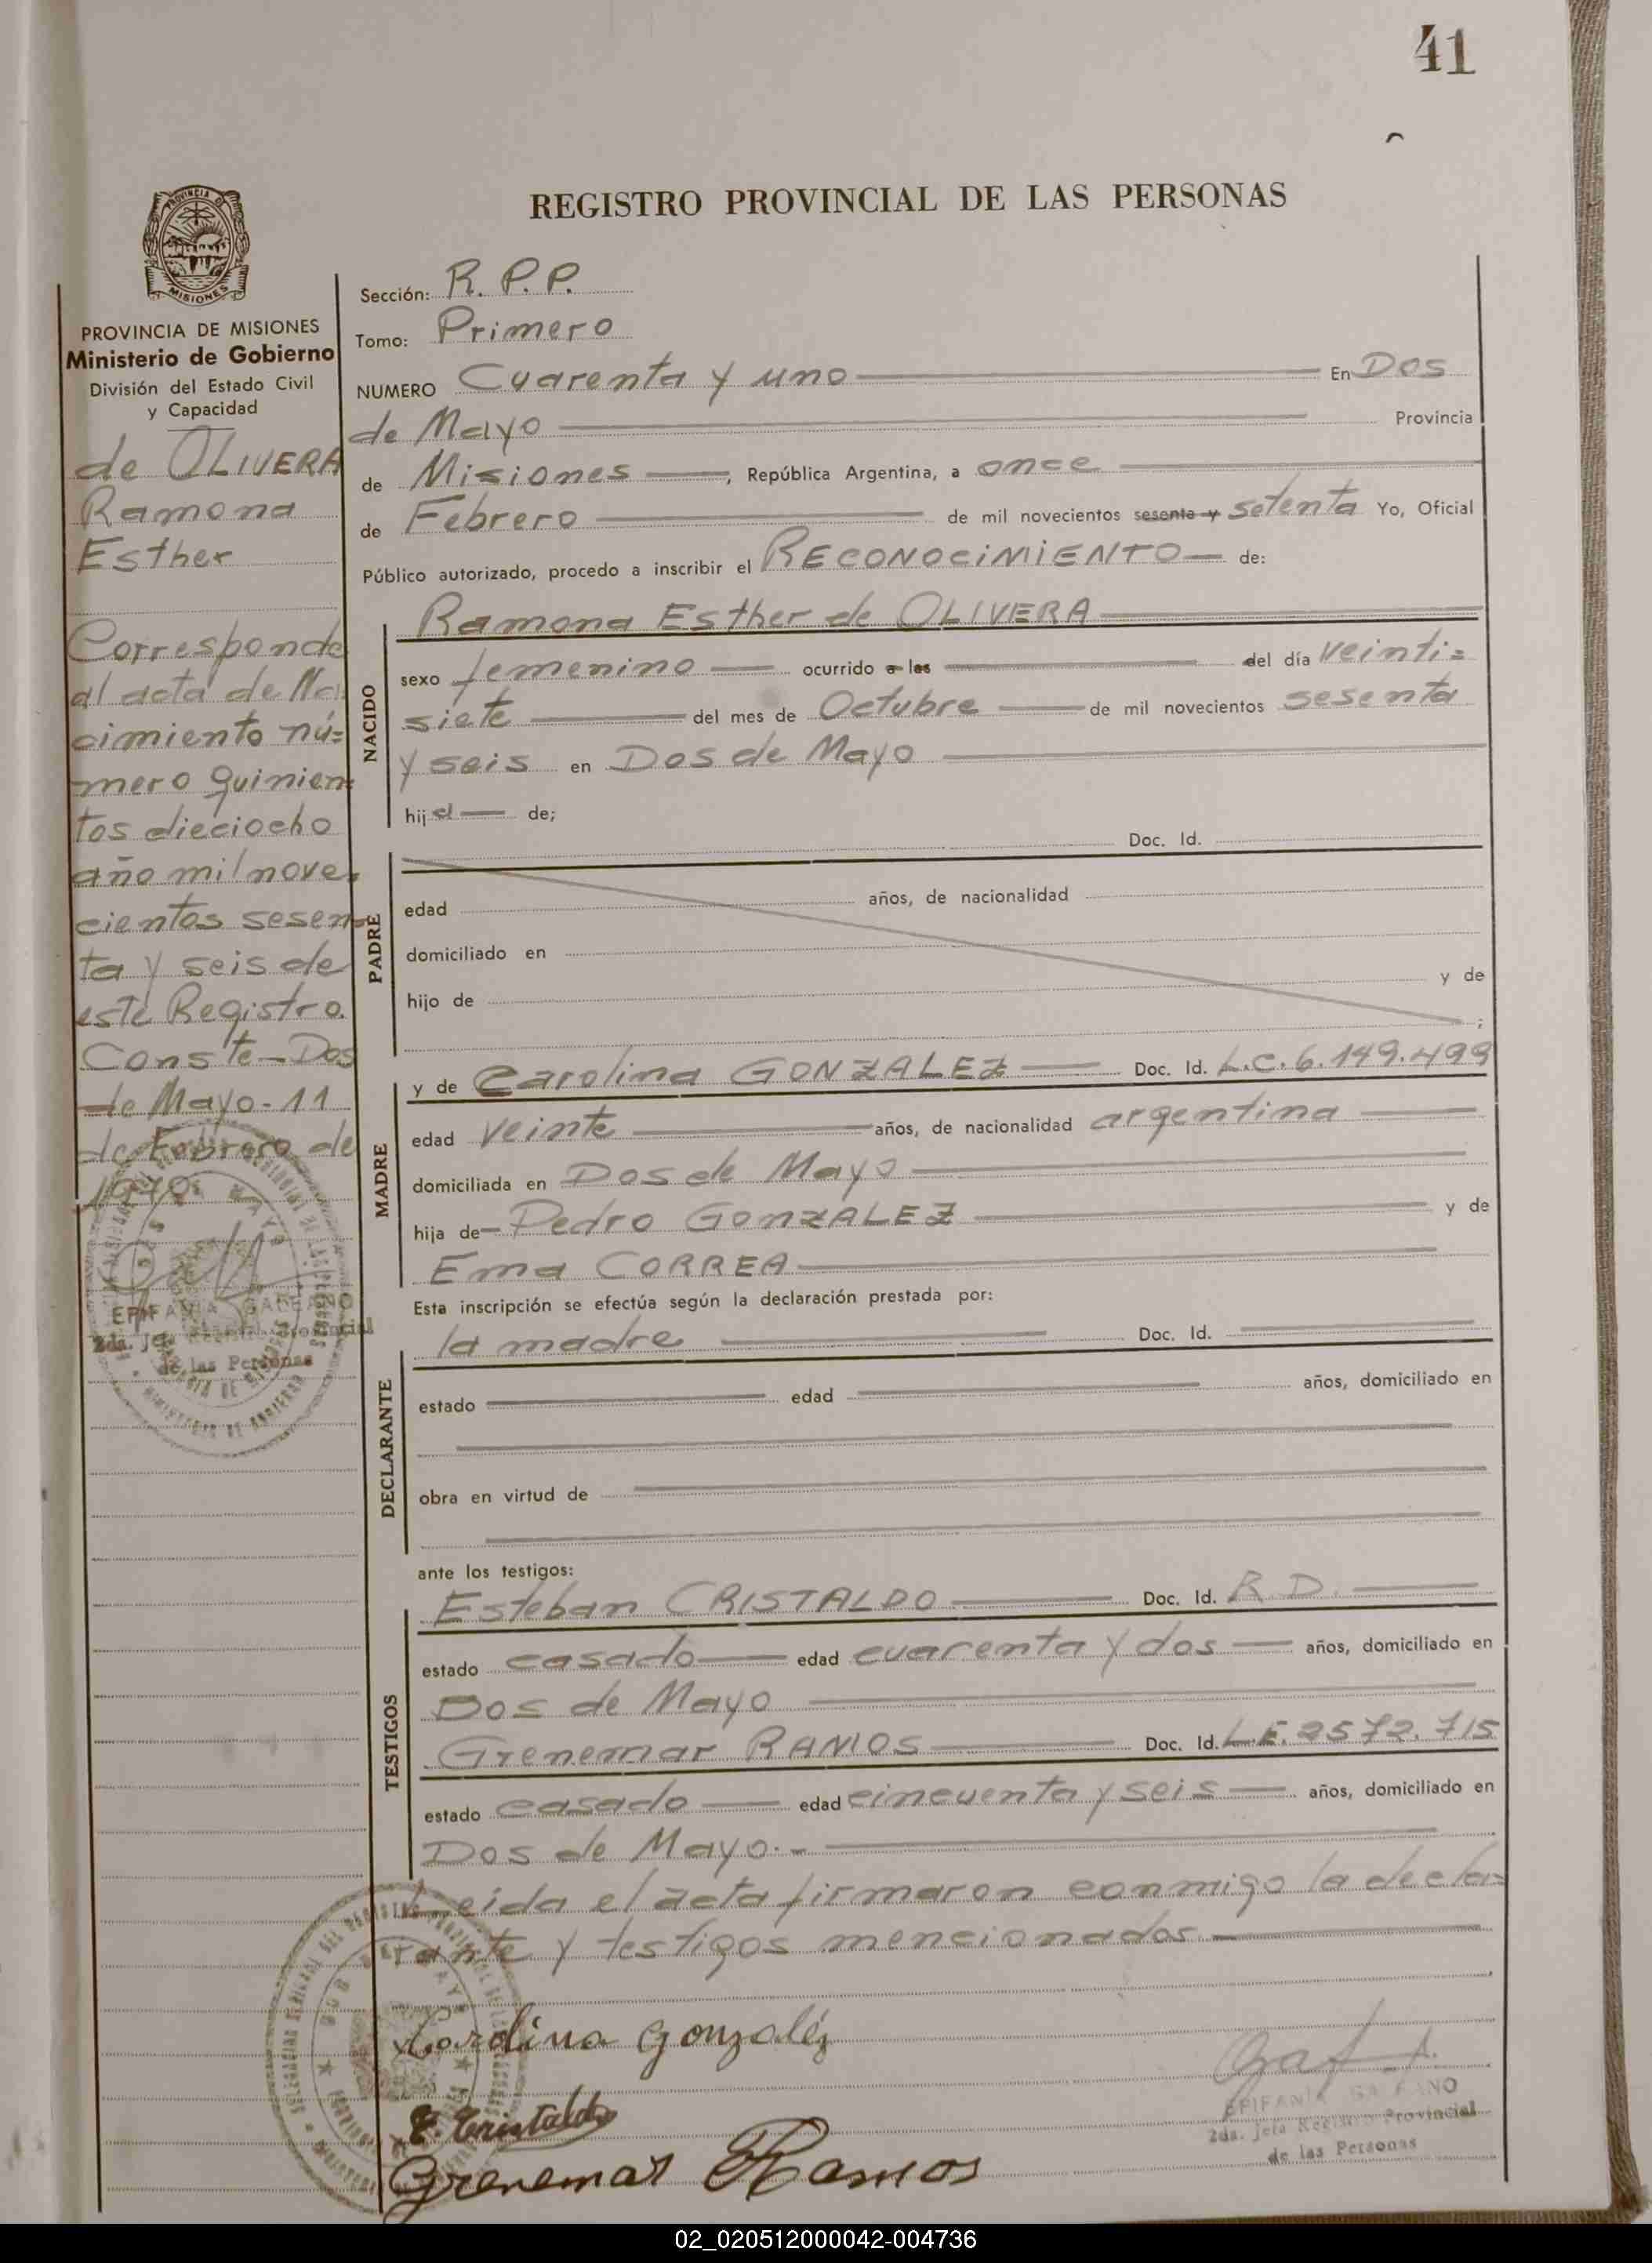 41
REGISTRO PROVINCIAL DE LAS PERSONAS
MISIONES
PROVINCIA DE MISIONES
Ministerio de Gobierno
División del Estado Civil
y Capacidad
de OLIVERA
Ramona
Esther
Corresponde
al acta de Na
cimiento nú=
mero quinien
tos dieciocho
año mil nove.
cientos sesen=
ta y seis de
este Registro.
Conste-Dos
de Mayo-11
de Febrero de
1970.
2da. Jefa Registro Provincial
de las Personas
Sección: R. P. P.
Tomo: Primero
NUMERO Cuarenta y uno En Dos
de Mayo Provincia
de Misiones, República Argentina, a once
de Febrero de mil novecientos sesenta y setenta Yo, Oficial
Público autorizado, procedo a inscribir el RECONOCIMIENTO de:
NACIDO
Ramona Esther de OLIVERA
sexo femenino ocurrido a las del día veinti=
siete del mes de Octubre de mil novecientos sesenta
y seis en Dos de Mayo
hija de;
PADRE
Doc. Id.
edad años, de nacionalidad
domiciliado en
hijo de y de
;
MADRE
y de Carolina GONZALEZ Doc. Id. L.C. 6.149.499
edad veinte años, de nacionalidad argentina
domiciliada en Dos de Mayo
hija de Pedro GONZALEZ y de
Ema CORREA
Esta inscripción se efectúa según la declaración prestada por:
DECLARANTE
la madre Doc. Id.
estado edad años, domiciliado en
obra en virtud de
ante los testigos:
TESTIGOS
Esteban CRISTALDO Doc. Id. R.D.
estado casado edad cuarenta y dos años, domiciliado en
Dos de Mayo
Grenemar RAMOS Doc. Id. L.E. 2572.715
estado casado edad cincuenta y seis años, domiciliado en
Dos de Mayo.-
Leida el acta firmaron conmigo la decla=
rante y testigos mencionados.-
Carolina Gonzaléz
E. Cristaldo
Grenemar Ramos
EPIFANIA
2da. Jefa Registro Provincial
de las Personas
02_020512000042-004736